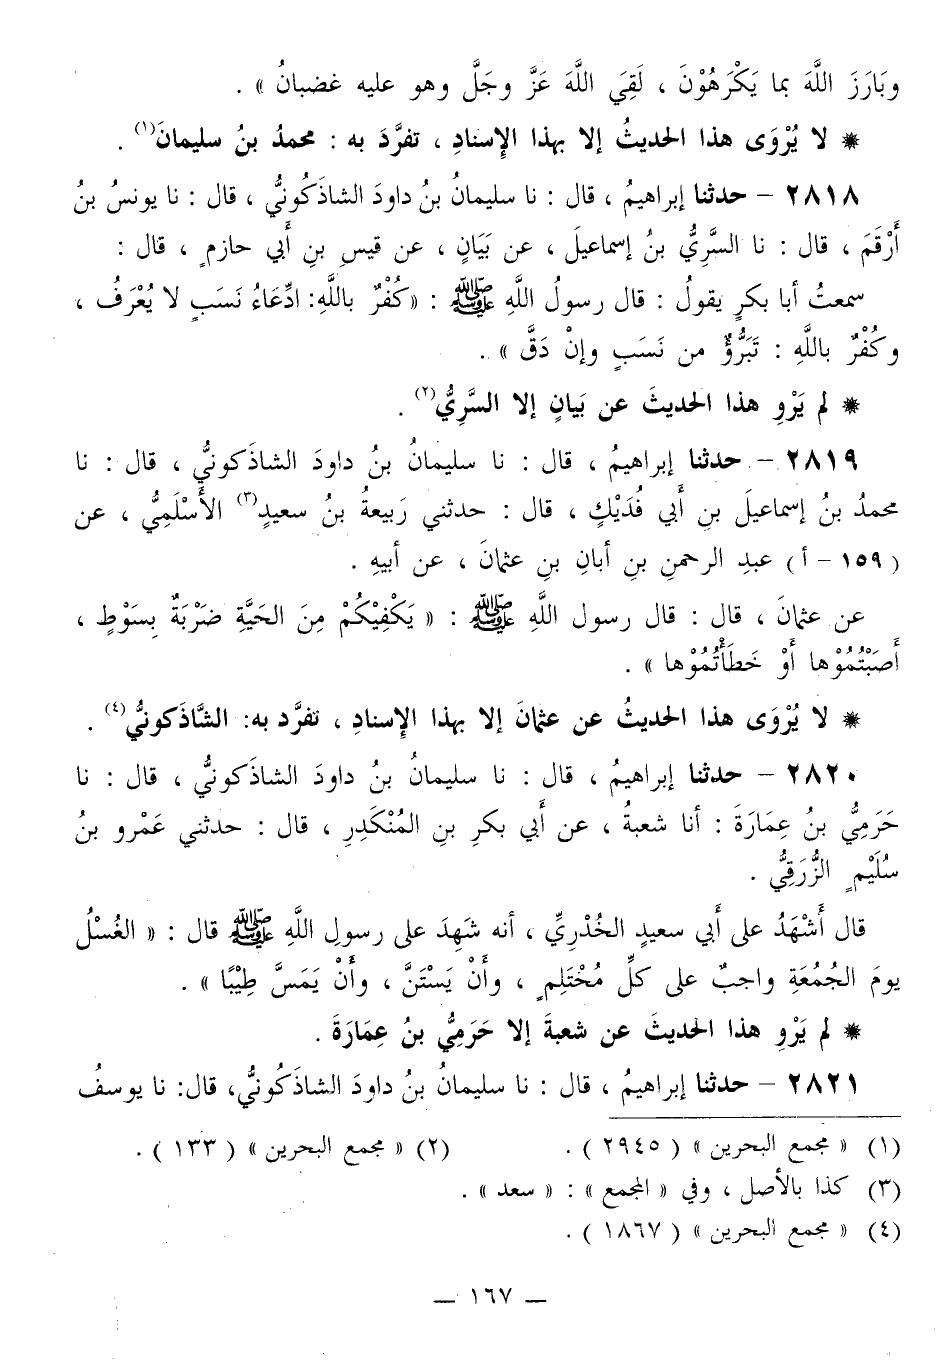 وبَارَزَ اللَّهَ بما يَكْرَهُوْنَ ، لَقِيَ اللَّهَ عَزَّ وجَلَّ وهو عليه غضبانُ » .
* لا يُرْوَى هذا الحديثُ إلا بهذا الإِسنادِ ، تفرَّدَ به : محمدُ بنُ سليمانَ(١) .
٢٨١٨ – حدثنا إبراهيمُ ، قال : نا سليمانُ بنُ داودَ الشاذَكُونيُّ ، قال : نا يونسُ بنُ
أَرْقَمَ ، قال : نا السَّرِيُّ بنُ إسماعيلَ ، عن بَيَانٍ ، عن قيسِ بنِ أَبي حازمٍ ، قال :
سمعتُ أبا بكرٍ يقولُ : قال رسولُ اللَّهِ ﷺ : «كُفْرٌ باللَّهِ: ادِّعَاءُ نَسَبٍ لا يُعْرَفُ ،
وكُفْرٌ باللَّهِ : تَبَرُّؤٌ من نَسَبٍ وإنْ دَقَّ » .
* لم يَرْوِ هذا الحديثَ عن بَيانٍ إلا السَّرِيُّ(٢) .
٢٨١٩ – حدثنا إبراهيمُ ، قال : نا سليمانُ بنُ داودَ الشاذَكونيُّ ، قال : نا
محمدُ بنُ إسماعيلَ بنِ أَبي فُدَيْكٍ ، قال : حدثني رَبيعةُ بنُ سعيدٍ(٣) الأَسْلَمِيُّ ، عن
( ١٥٩ – أ ) عبدِ الرحمنِ بنِ أبانِ بنِ عثمانَ ، عن أبيهِ .
عن عثمانَ ، قال : قال رسول اللَّهِ ﷺ : « يَكْفِيْكُمْ مِنَ الحَيَّةِ ضَرْبَةٌ بِسَوْطٍ ،
أَصَبْتُمُوْها أَوْ خَطَأْتُمُوْها » .
* لا يُرْوَى هذا الحديثُ عن عثمانَ إلا بهذا الإِسنادِ ، تفرَّد به: الشَّاذَكونيُّ(٤) .
٢٨٢٠ – حدثنا إبراهيمُ ، قال : نا سليمانُ بنُ داودَ الشاذَكونيُّ ، قال : نا
حَرَمِيُّ بنُ عِمَارَةَ : أنا شعبةُ ، عن أَبي بكرِ بنِ المُنْكَدِرِ ، قال : حدثني عَمْرو بنُ
سُلَيْمٍ الزُّرَقِيُّ .
قال أَشْهَدُ على أَبي سعيدٍ الخُدْرِيِّ ، أنه شَهِدَ على رسولِ اللَّهِ ﷺ قال : « الغُسْلُ
يومَ الجُمُعَةِ واجبٌ على كلِّ مُحْتَلِمٍ ، وأَنْ يَسْتَنَّ ، وأَنْ يَمَسَّ طِيْبًا » .
* لم يَرْوِ هذا الحديثَ عن شعبةَ إلا حَرَمِيُّ بنُ عِمَارَةَ .
٢٨٢١ – حدثنا إبراهيمُ ، قال : نا سليمانُ بنُ داودَ الشاذَكُونيُّ، قال: نا يوسفُ
(١) « مجمع البحرين » ( ٢٩٤٥ ) . (٢) « مجمع البحرين » ( ١٣٣ ) .
(٣) كذا بالأصل ، وفي « المجمع » : « سعد » .
(٤) « مجمع البحرين » ( ١٨٦٧ ) .
— ١٦٧ —